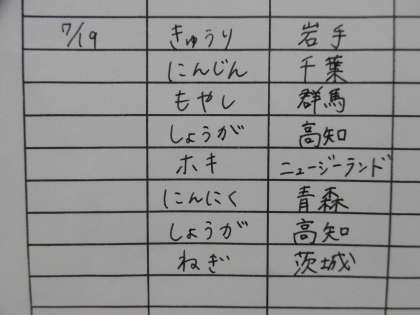 7/19 きゅうり 岩手
にんじん 千葉
もやし 群馬
しょうが 高知
ホキ ニュージーランド
にんにく 青森
しょうが 高知
ねぎ 茨城